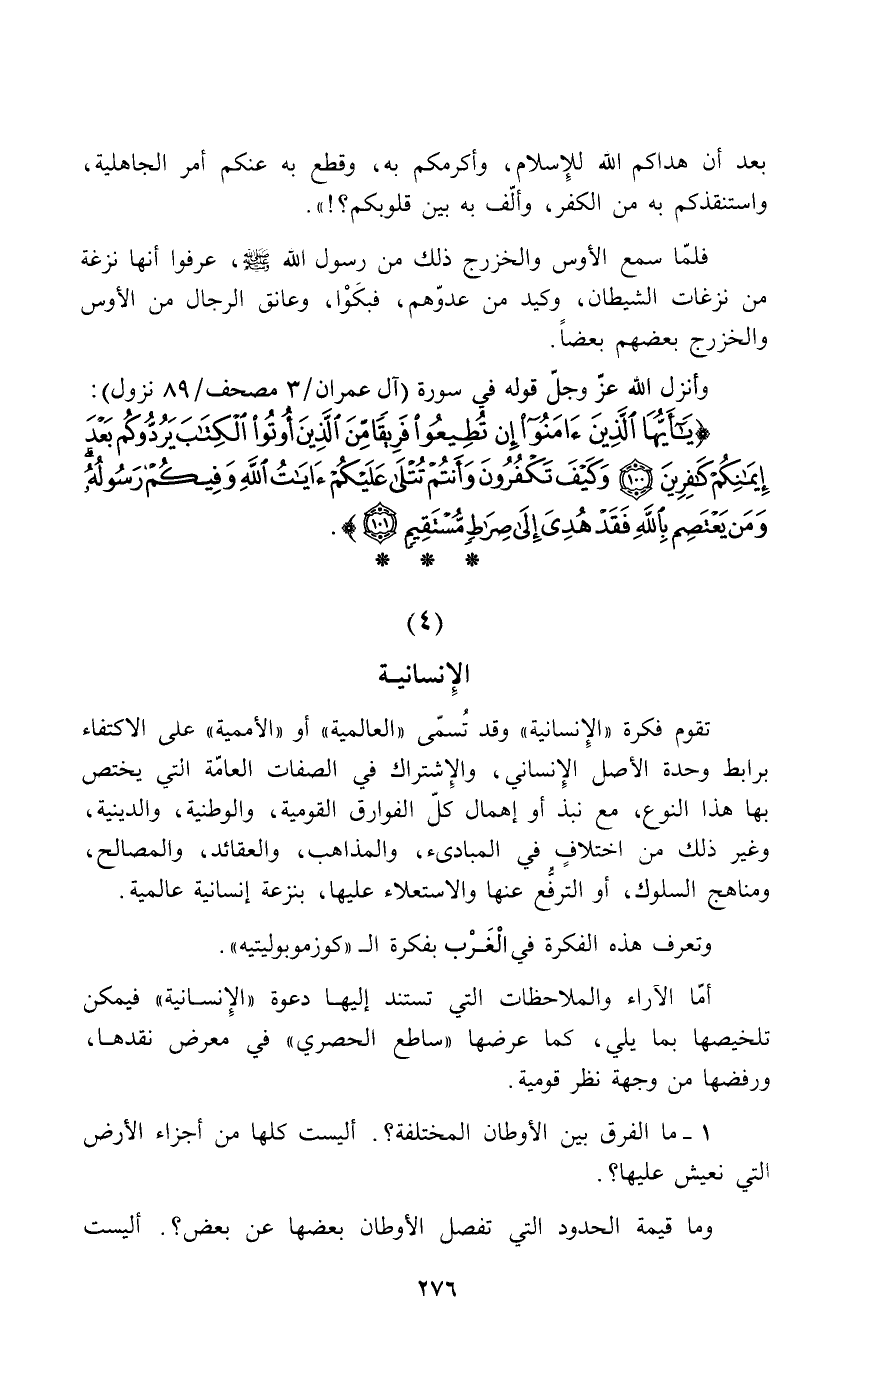 بعد أن هداكم الله للإِسلام، وأكرمكم به، وقطع به عنكم أمر الجاهلية،
واستنقذكم به من الكفر، وألّف به بين قلوبكم؟!».
فلمّا سمع الأوس والخزرج ذلك من رسول الله ﷺ، عرفوا أنها نزغة
من نزغات الشيطان، وكيد من عدوّهم، فبكَوْا، وعانق الرجال من الأوس
والخزرج بعضهم بعضاً.
وأنزل الله عزّ وجلّ قوله في سورة (آل عمران/٣ مصحف/٨٩ نزول):
﴿يَٰٓأَيُّهَا ٱلَّذِينَ ءَامَنُوٓا۟ إِن تُطِيعُوا۟ فَرِيقًا مِّنَ ٱلَّذِينَ أُوتُوا۟ ٱلْكِتَٰبَ يَرُدُّوكُم بَعْدَ
إِيمَٰنِكُمْ كَٰفِرِينَ ۝١٠٠ وَكَيْفَ تَكْفُرُونَ وَأَنتُمْ تُتْلَىٰ عَلَيْكُمْ ءَايَٰتُ ٱللَّهِ وَفِيكُمْ رَسُولُهُۥۗ
وَمَن يَعْتَصِم بِٱللَّهِ فَقَدْ هُدِىَ إِلَىٰ صِرَٰطٍ مُّسْتَقِيمٍ ۝١٠١﴾.
* * *
(٤)
الإِنسانيـة
تقوم فكرة «الإِنسانية» وقد تُسمّى «العالمية» أو «الأممية» على الاكتفاء
برابط وحدة الأصل الإِنساني، والإِشتراك في الصفات العامّة التي يختص
بها هذا النوع، مع نبذ أو إهمال كلّ الفوارق القومية، والوطنية، والدينية،
وغير ذلك من اختلافٍ في المبادىء، والمذاهب، والعقائد، والمصالح،
ومناهج السلوك، أو الترفُّع عنها والاستعلاء عليها، بنزعة إنسانية عالمية.
وتعرف هذه الفكرة في الْغَـرْب بفكرة الـ «كوزموبوليتيه».
أمّا الآراء والملاحظات التي تستند إليهـا دعوة «الإِنسـانية» فيمكن
تلخيصها بما يلي، كما عرضها «ساطع الحصري» في معرض نقدهـا،
ورفضها من وجهة نظر قومية.
١ ـ ما الفرق بين الأوطان المختلفة؟. أليست كلها من أجزاء الأرض
التي نعيش عليها؟.
وما قيمة الحدود التي تفصل الأوطان بعضها عن بعض؟. أليست
٢٧٦